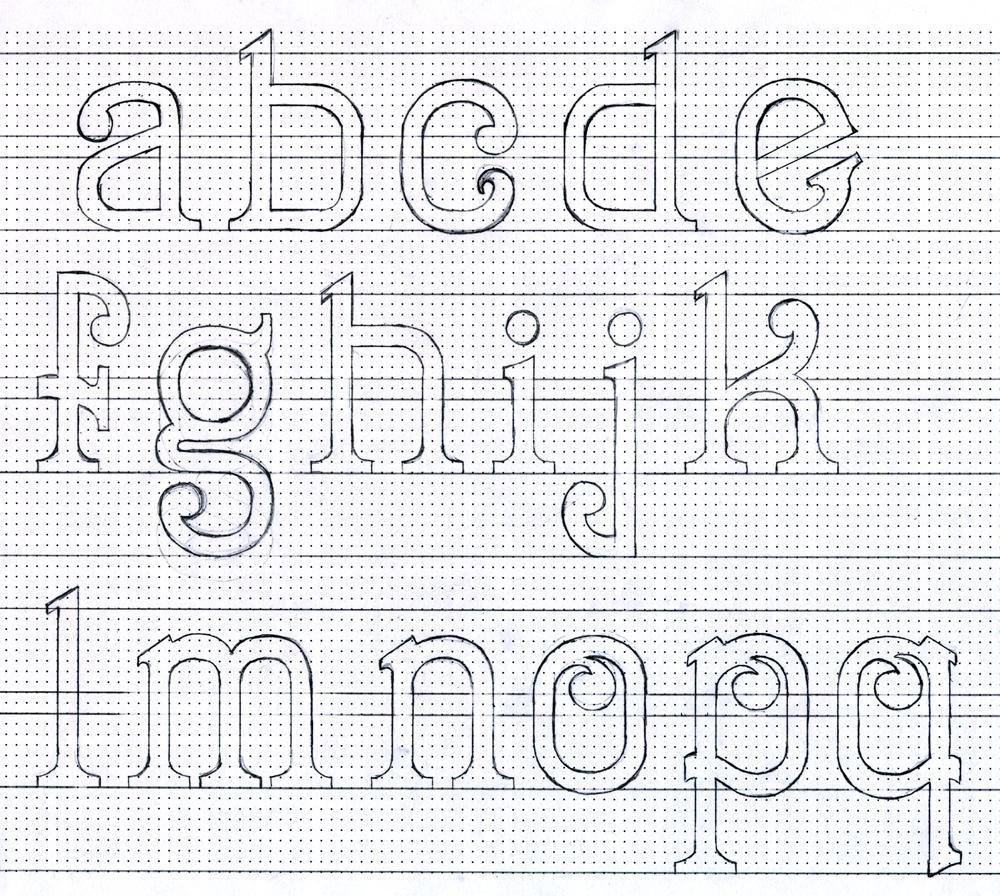 abcde
fghijk
lmnopq